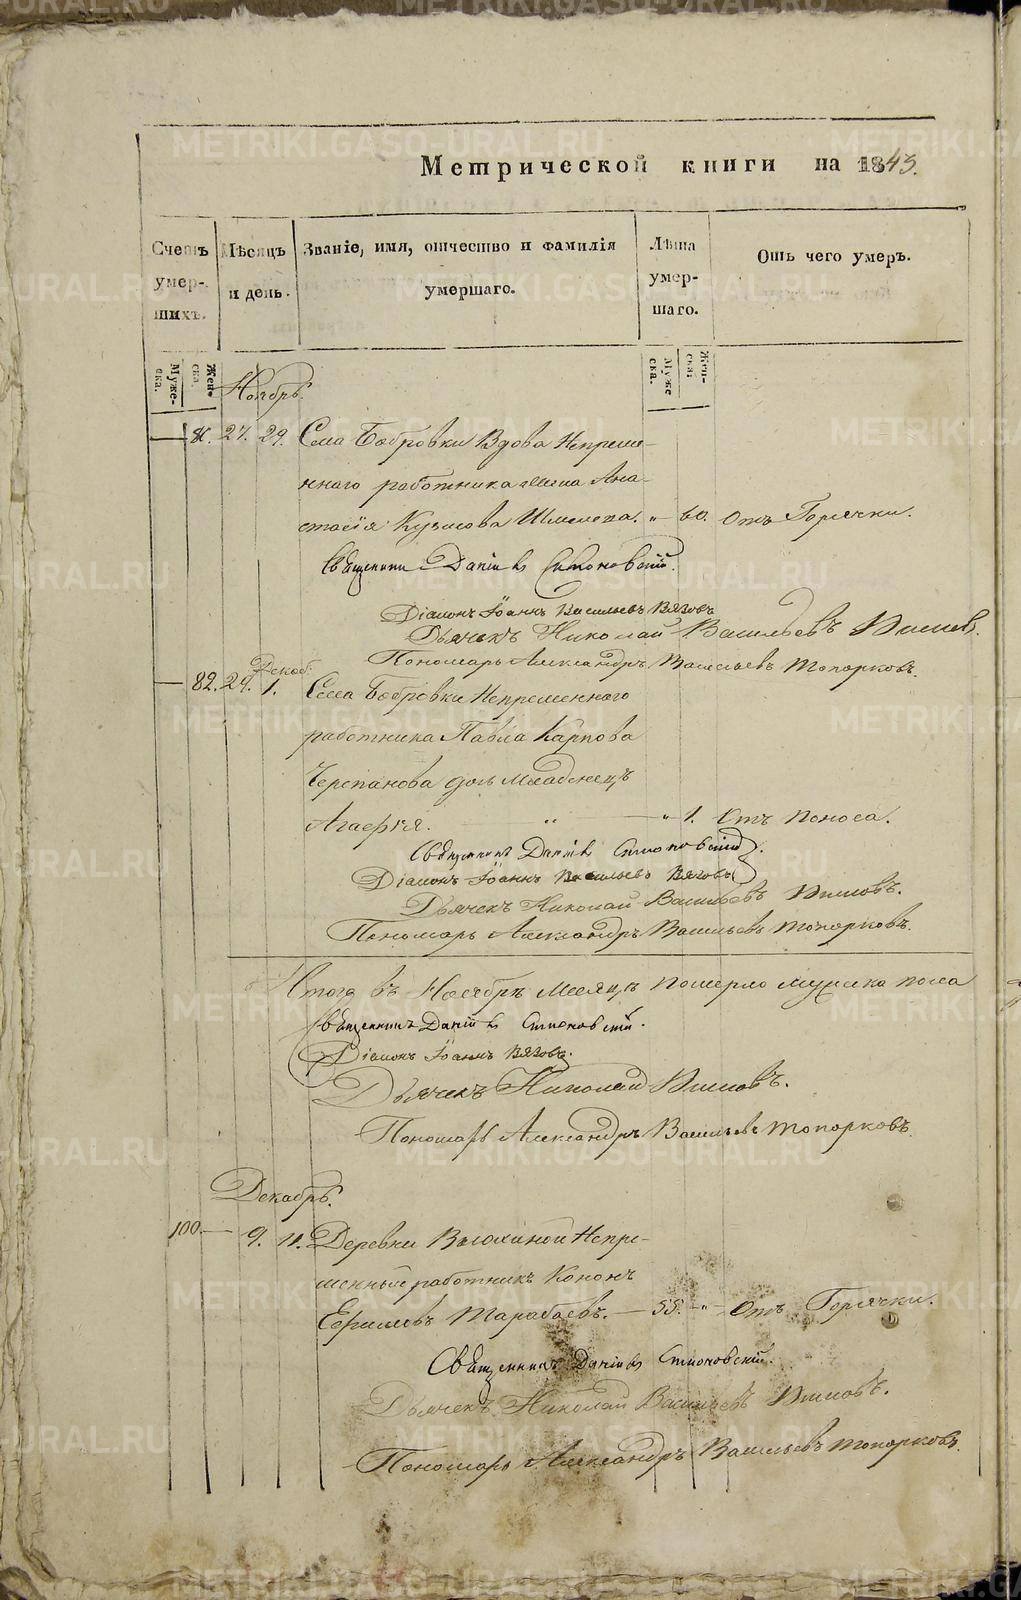 METRIKI.GASO-URAL.RU
Метрической книги на 1843.
Счетъ умер-шихъ.
Мѣсяцъ и день.
Званіе, имя, отчество и фамилія умершаго.
Лѣта умер-шаго.
Отъ чего умеръ.
Муже-ска.
Жен-ска.
Муже ска.
Жен-ска:
Ноябрь.
27. 29. Села Бобровки Вдова Непреме-
ннаго работника жена Ана-
стасія Кузмова „ 60. Отъ Горячки.
Священникъ Даніилъ Симоновскій.
Діаконъ Іоаннъ Васильевъ Вязовъ
Дьячекъ Николай Васильевъ
Пономарь Александръ Васильевъ Топорковъ.
Декаб.
82. 29. 1. Села Бобровки Непременнаго
работника Павла Карпова
Черепанова дочь младенецъ
Агафія. „ „ 1. Отъ поноса.
Священникъ Даніилъ Симоновскій.
Діаконъ Іоаннъ Васильевъ Вязовъ
Дьячекъ Николай Васильевъ
Пономарь Александръ Васильевъ Топорковъ.
Итого въ Ноябрѣ месяцѣ померло мужска пола
Священникъ Даніилъ Симоновскій.
Діаконъ Іоаннъ Вязовъ.
Дьячекъ Николай
Пономарь Александръ Васильевъ Топорковъ.
Декабрь.
100. — 9. 11. Деревни Непре-
менный работникъ Кононъ
Ефимовъ Тарабаевъ. — 55. „ Отъ Горячки.
Священникъ Даніилъ Симоновскій.
Дьячекъ Николай Васильевъ
Пономарь Александръ Васильевъ Топорковъ.